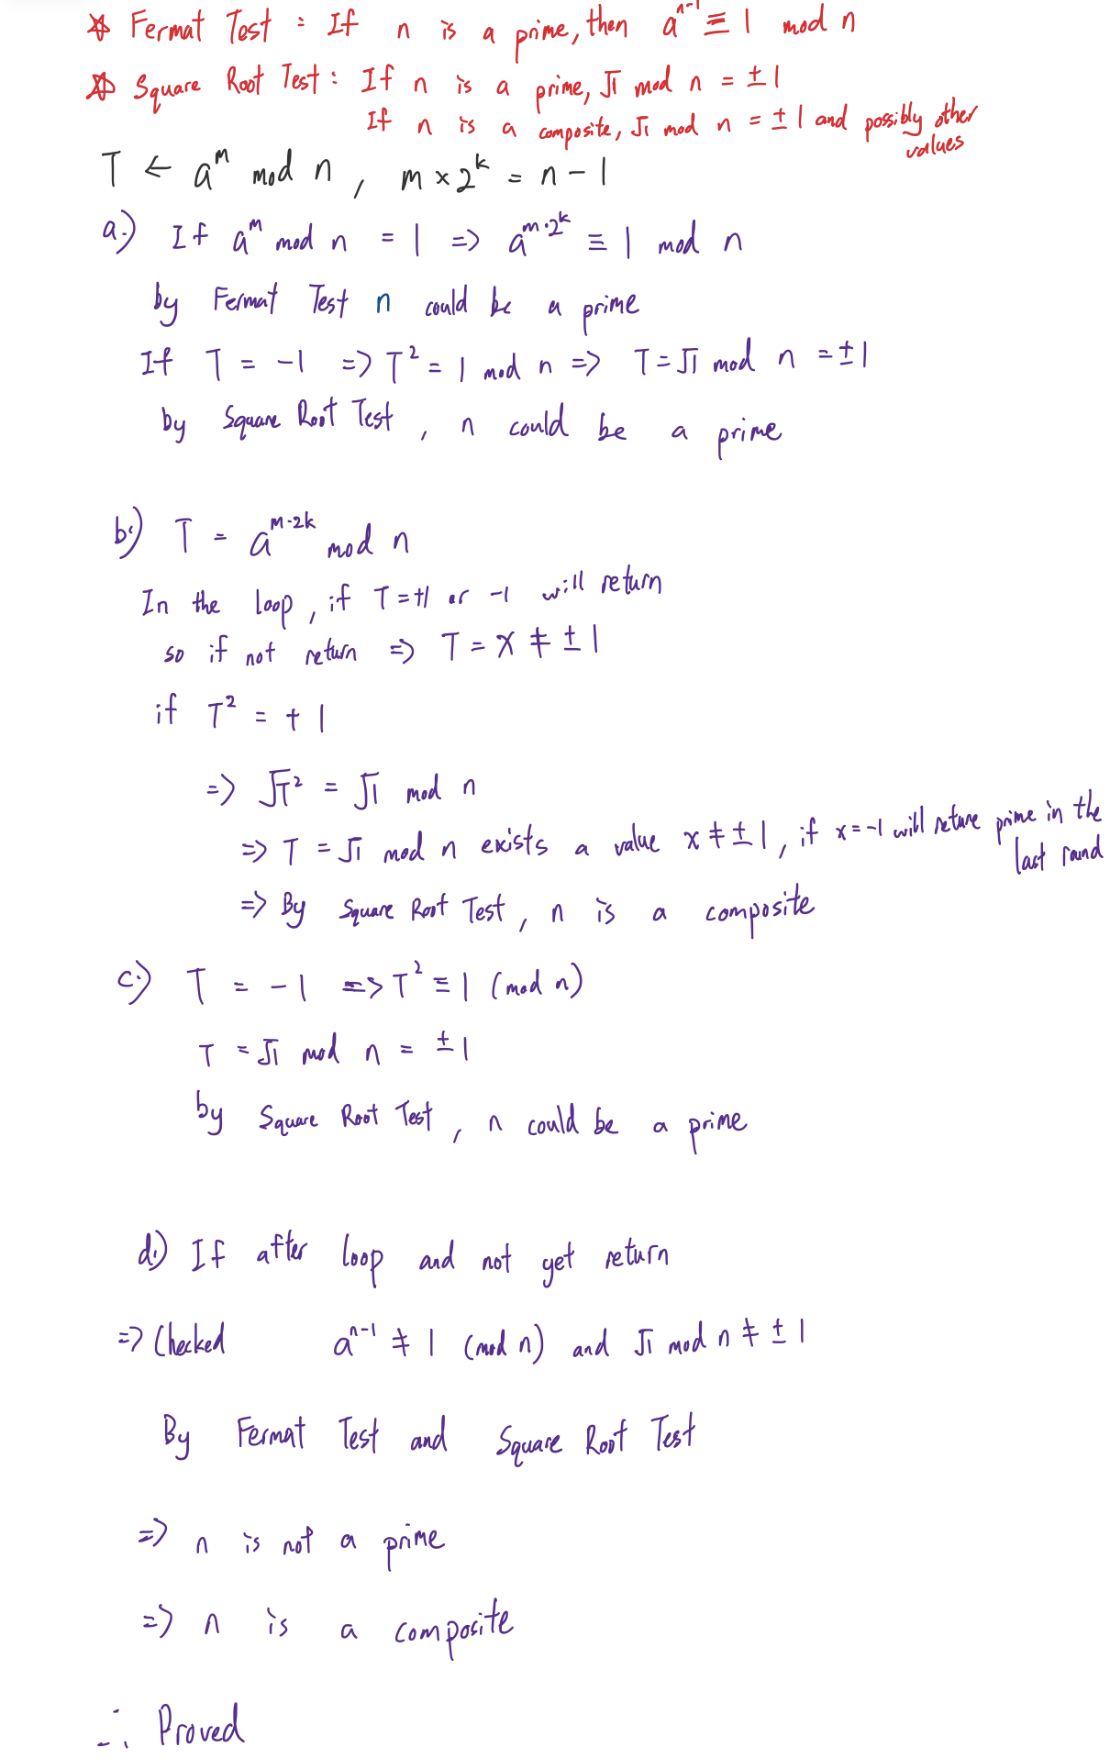 ☆ Fermat Test : If n is a prime, then a^{n-1} ≡ 1 mod n
☆ Square Root Test : If n is a prime, √1 mod n = ±1
If n is a composite, √1 mod n = ±1 and possibly other values
T ← a^m mod n , m × 2^k = n - 1
a.) If a^m mod n = 1 => a^{m·2^k} ≡ 1 mod n
by Fermat Test n could be a prime
If T = -1 => T^2 = 1 mod n => T = √1 mod n = ±1
by Square Root Test , n could be a prime
b.) T = a^{m·2k} mod n
In the loop , if T = +1 or -1 will return
so if not return => T = x ≠ ±1
if T^2 = +1
=> √T^2 = √1 mod n
=> T = √1 mod n exists a value x ≠ ±1 , if x = -1 will reture prime in the last rand
=> By Square Root Test , n is a composite
c.) T = -1 => T^2 ≡ 1 (mod n)
T = √1 mod n = ±1
by Square Root Test , n could be a prime
d.) If after loop and not get return
=> Checked a^{n-1} ≠ 1 (mod n) and √1 mod n ≠ ±1
By Fermat Test and Square Root Test
=> n is not a prime
=> n is a composite
∴ Proved